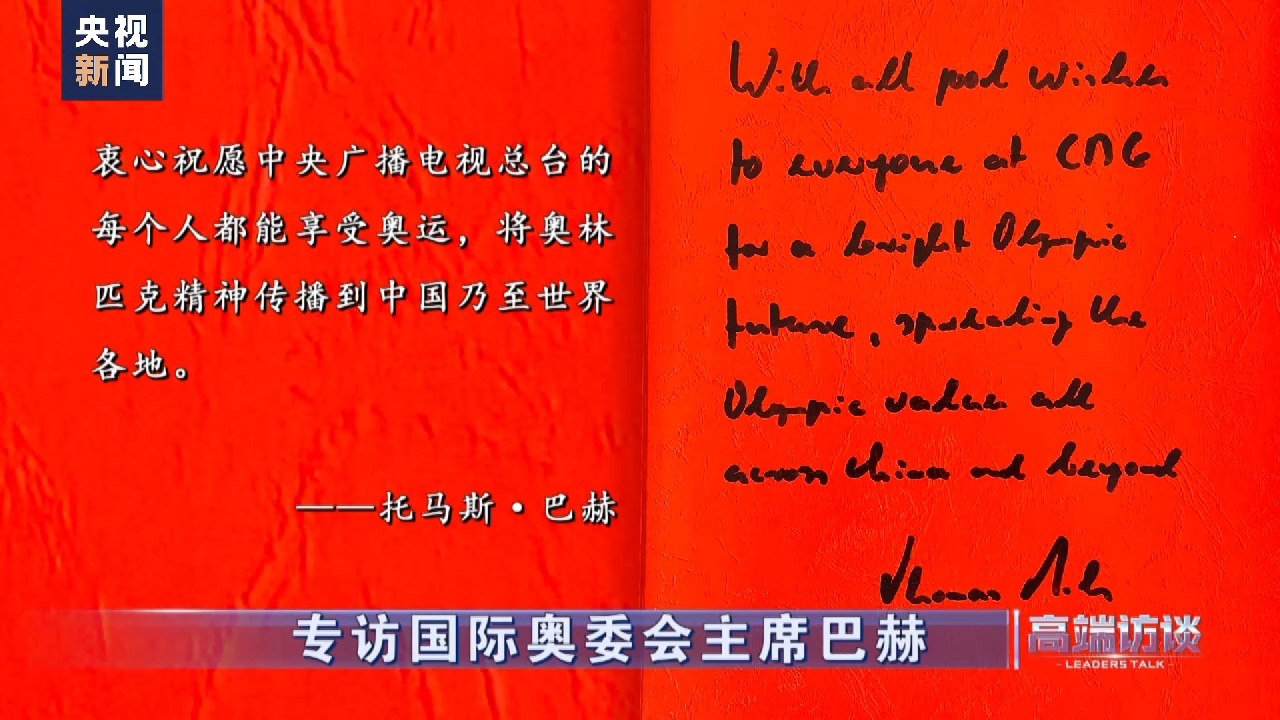 央视
新闻
衷心祝愿中央广播电视总台的
每个人都能享受奥运，将奥林
匹克精神传播到中国乃至世界
各地。
——托马斯·巴赫
With all good wishes
to everyone at CMG
for a bright Olympic
future, spreading the
Olympic values all
across China and beyond
Thomas Bach
专访国际奥委会主席巴赫
高端访谈
LEADERS TALK